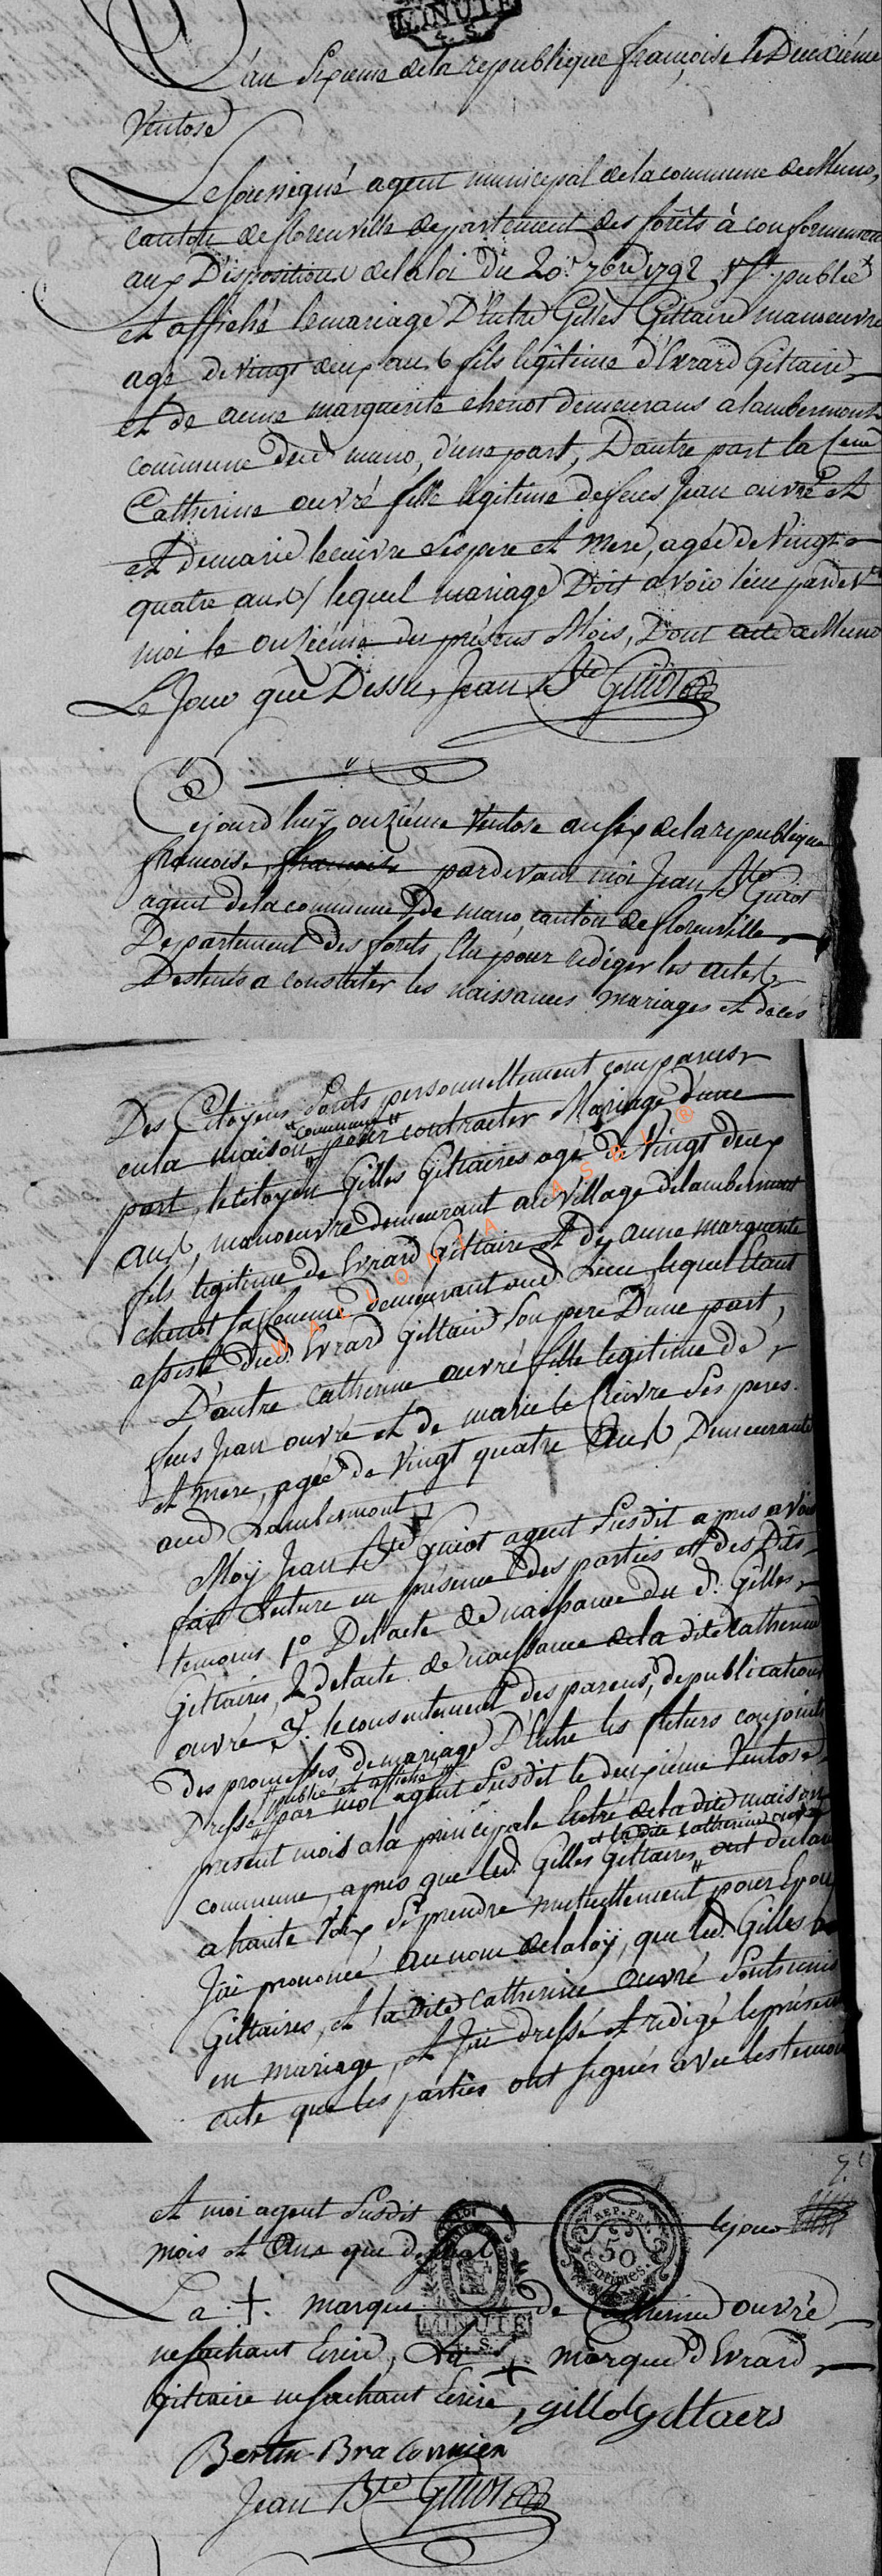 MINUTE
4. S.
L'an Sixieme dela republique françoise le Deuxiéme
Ventose
Le soussigné agent municipal dela commune de Muno,
canton de florenville departement des forêts à conformement
aux Dispositions dela loi du 20.e 7bre 1792 publié
et affiché le mariage D'Entre Gilles Giltaire manoeuvre
agé de vingt deux ans fils legitime d'Evrard Giltaire
et de anne marguerite chenot demeurans a lambermont
commune dud muno, d'une part, D'autre part la
Catherine ouvré fille legitime defeus Jean ouvré et
et de marie lecuivre ses pere et mere, agée de Vingt
quatre ans / lequel mariage Doit avoir lieu pardevt
moi le onzieme du présens Mois, Dont acte a Muno
Le Jour que Dessu, Jean Bte Guiot
Cejourd'huy onziéme Ventose an six dela republique
francoise, francoise pardevant moi Jean Bte Guiot
agent dela commune de muno, canton de florenville
Departement des forets, Elu pour rediger les actes
Destinés a constater les naissances mariages et décés
Des Citoÿens Sonts personnellement comparus
en la maison commune pour contracter Mariage d'une
part, le citoyen Gilles Giltaires agé de Vingt deux
ans, manoeuvre demeurant au Village delambermont
fils legitime de Evrard Giltaire et de anne marguerite
chenot sa femme demeurant aud Lieu lequel Etant
assisté dud. Evrard Giltaire son pere D'une part,
D'autre Catherine ouvré fille legitime de
feus Jean ouvré et de marie le Cuivre Ses peres
et mere, agée de Vingt quatre Ans, Demeurante
aud Lambermont
Moÿ Jean Bte Guiot agent Susdit apres avoir
fait Lecture en présence des parties et des Dits
temoins 1o Del'acte de naissance du d. Gilles
Giltaires, 2 delacte de naissance dela dite Catherine
ouvré 3o. le consentement des parens, de publications
des promesses de mariage D'Entre les futurs conjoints
Dressé publié et affiché par moi agent Susdit le deuxieme Ventose
present mois a la principale Entré dela dite maison
commune, apres que led. Gilles Giltaires et la dite Catherine ouvré ont declaré
a haute Voix, Se prendre mutuellement pour Epoux
J'ai prononcé au nom delaloÿ, que led. Gilles
Giltaires, et la Dite Catherine Ouvré Sonts unis
en mariage, et J'ai dressé et redigé le présent
acte que les parties ont signés avec les temoins
et moi agent Susdit le jour
mois et Ans que dessus
REP. FRA.
50
centimes
MINUTE
4. S.
La + marque de Catherine ouvré
ne sachant Ecrire, La + marque d'Evrard
giltaire ne sachant Ecrire, gilles giltaers
Bertin Braconnier
Jean Bte Guiot
WALLONIA ASBL ®